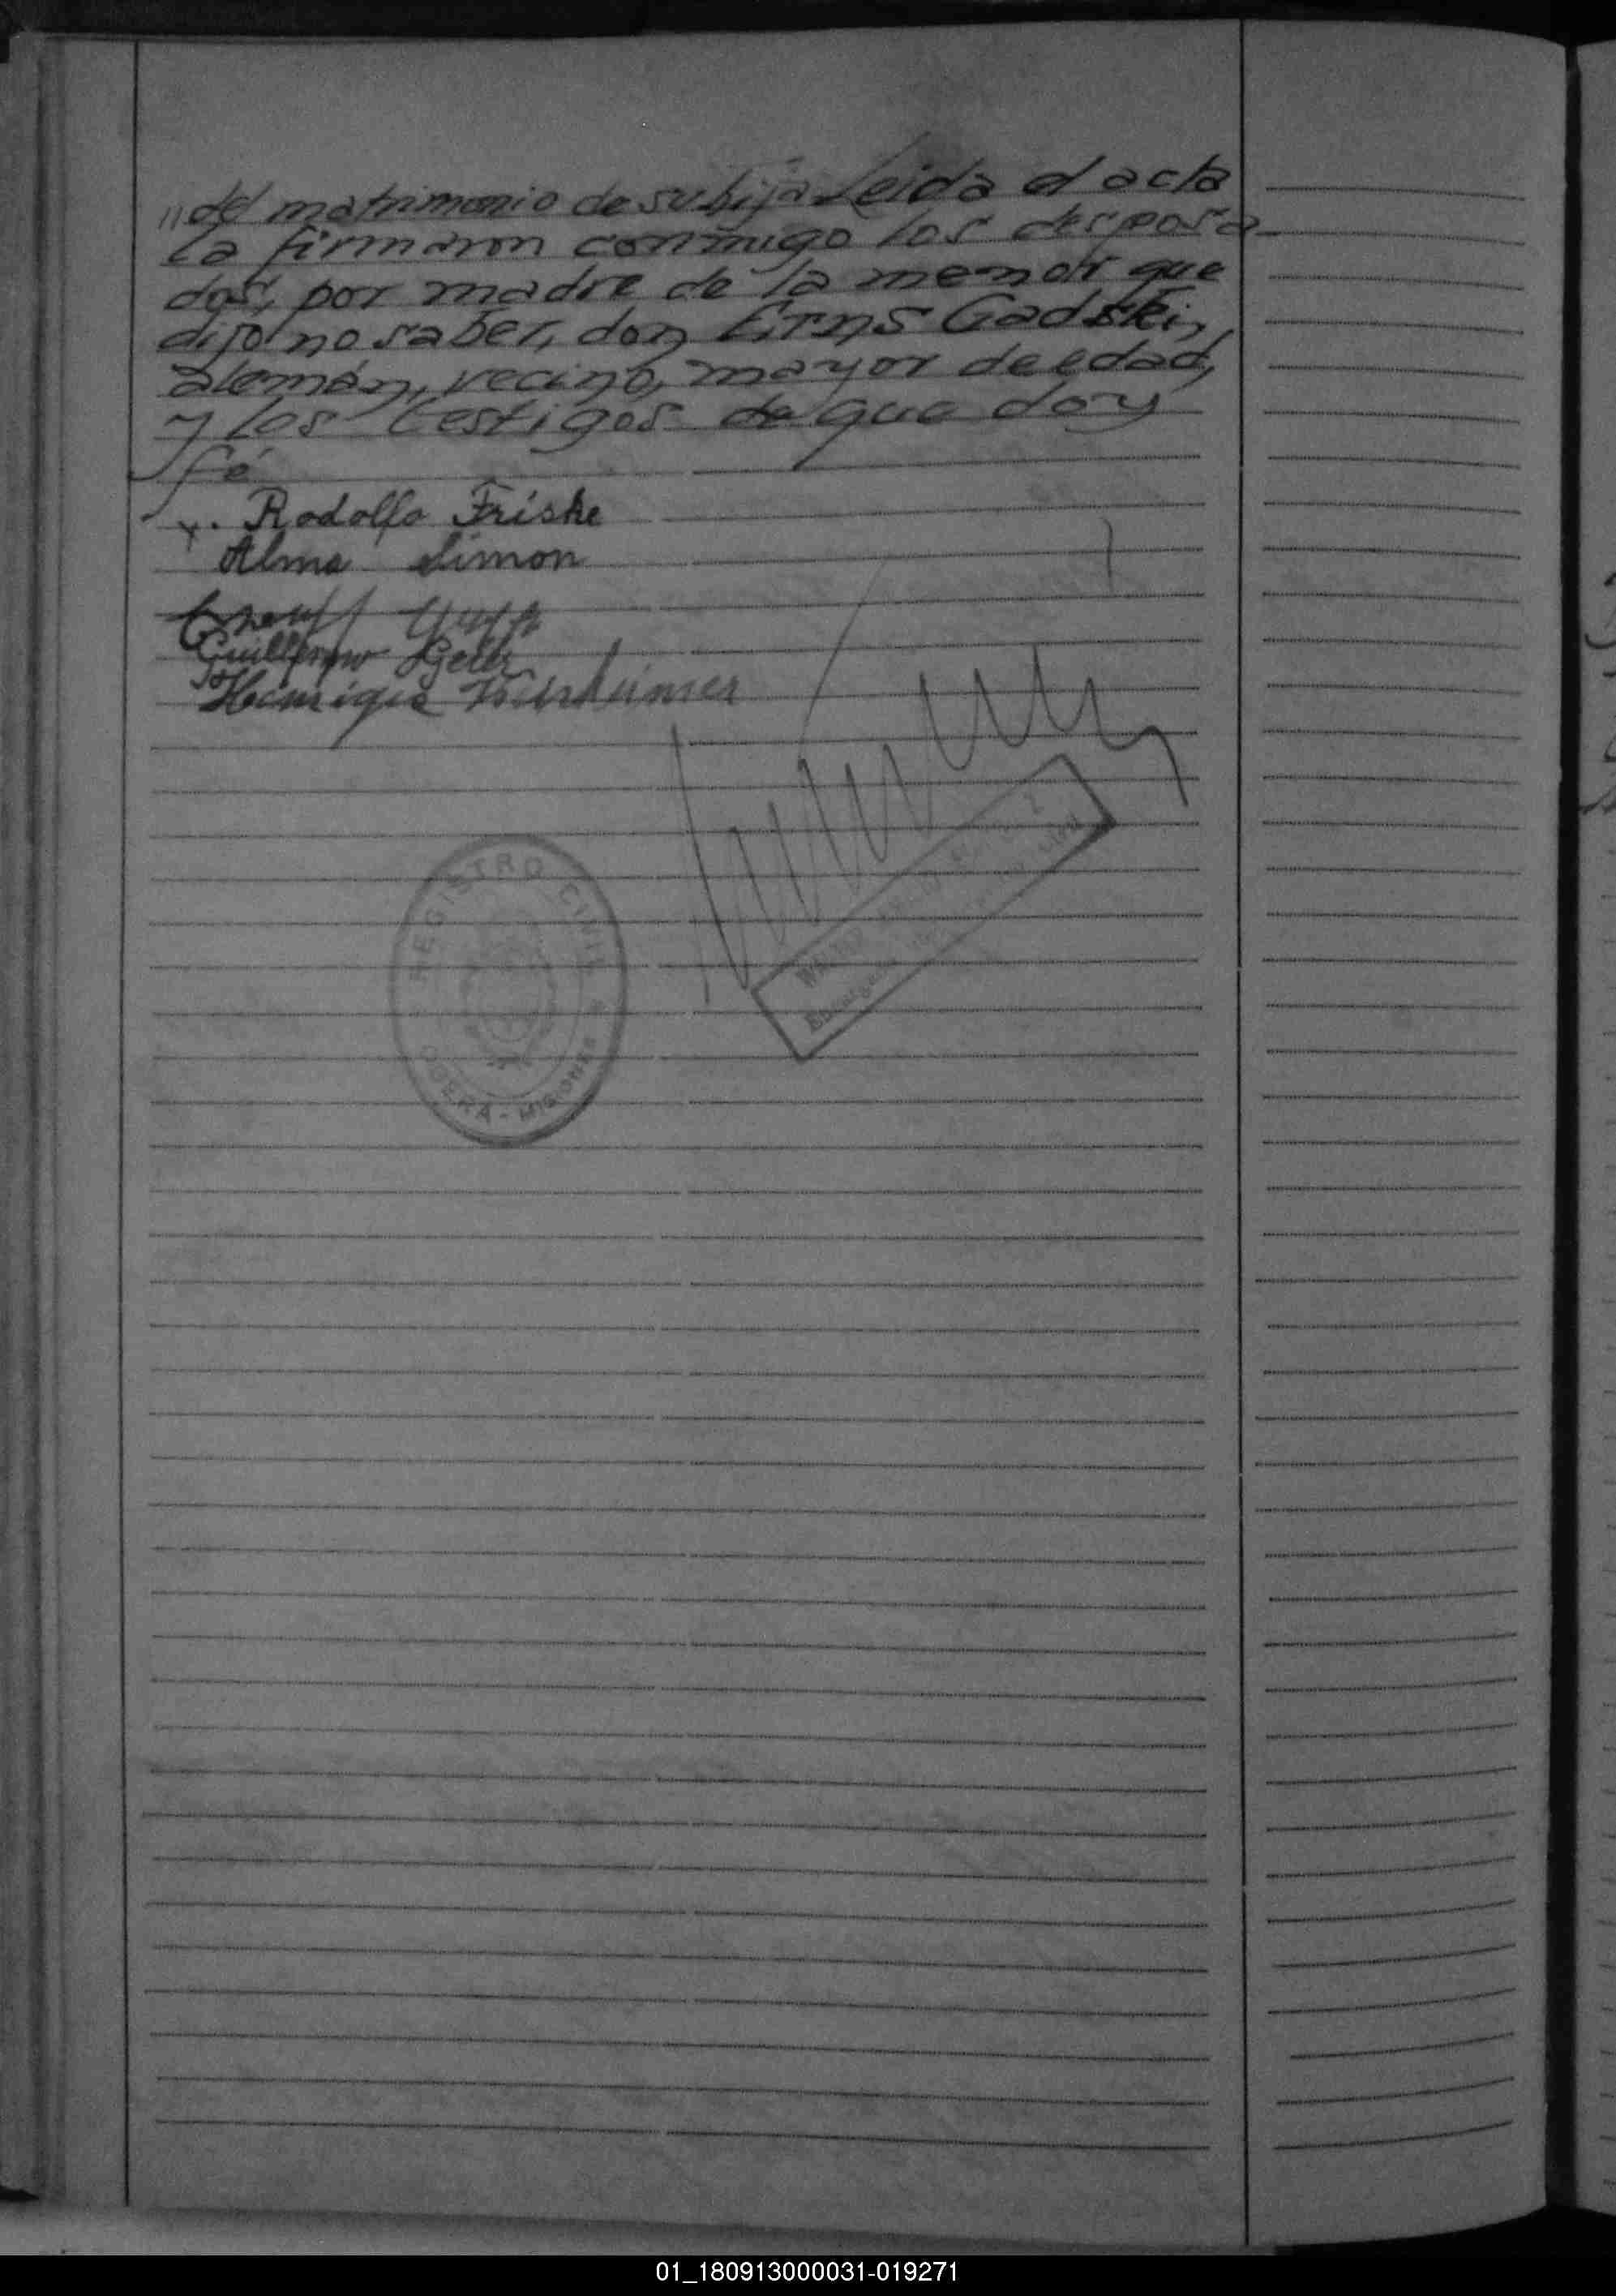 "del matrimonio de su hija Leida el acta
la firmaron conmigo los desposa-
dos, por madre de la menor que
dijo no saber, don Erns Gadski,
alemán, vecino, mayor de edad,
y los testigos de que doy
fé
x. Rodolfo Friske
Alma Simon
Guillermo
REGISTRO CIVIL
OBERÁ - MISIONES
01_180913000031-019271